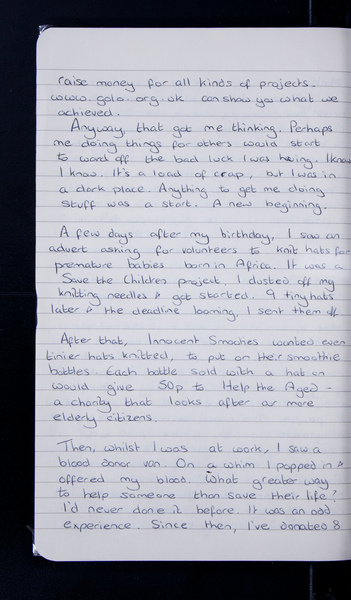 raise money for all kinds of projects.
www.golo.org.uk can show you what we
achieved.
Anyway, that got me thinking. Perhaps
me doing things for others would start
to ward off the bad luck I was having. I know
I know. It's a load of crap, but I was in
a dark place. Anything to get me doing
stuff was a start. A new beginning.
A few days after my birthday, I saw an
advert asking for volunteers to knit hats for
premature babies born in Africa. It was a
Save the Children project. I dusted off my
knitting needles & got started. 9 tiny hats
later & the deadline looming, I sent them off
After that, Innocent Smoothies wanted even
tinier hats knitted, to put on their smoothie
bottles. Each bottle sold with a hat on
would give 50p to Help the Aged -
a charity that looks after our more
elderly citizens.
Then, whilst I was at work, I saw a
blood donor van. On a whim I popped in &
offered my blood. What greater way
to help someone than save their life?
I'd never done it before. It was an odd
experience. Since then, I've donated 8